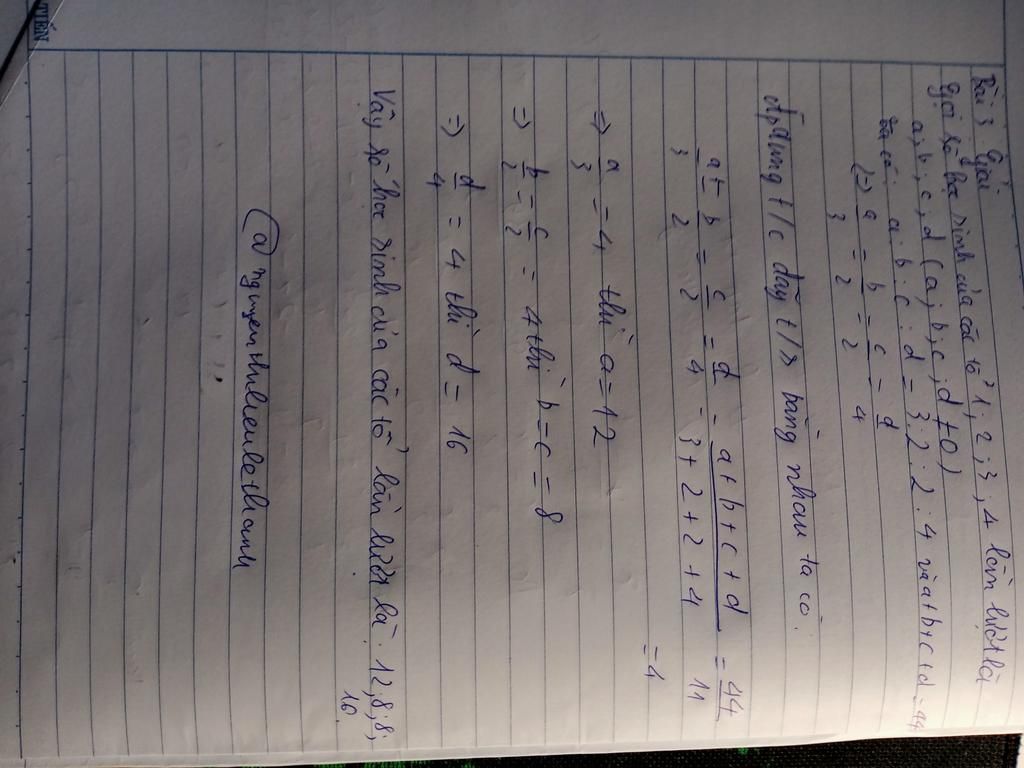 Bài 3 Giải
Gọi số học sinh của các tổ 1; 2; 3; 4 lần lượt là
a; b; c; d (a; b; c; d ≠ 0)
Ta có: a : b : c : d = 3 : 2 : 2 : 4 và a+b+c+d = 44
(=) a/3 = b/2 = c/2 = d/4
Áp dụng t/c dãy t/s bằng nhau ta có:
a/3 = b/2 = c/2 = d/4 = a+b+c+d/3+2+2+4 = 44/11
= 4
=) a/3 = 4 thì a = 12
=) b/2 = c/2 = 4 thì b = c = 8
=) d/4 = 4 thì d = 16
Vậy số học sinh của các tổ lần lượt là: 12; 8; 8;
16.
TIẾN